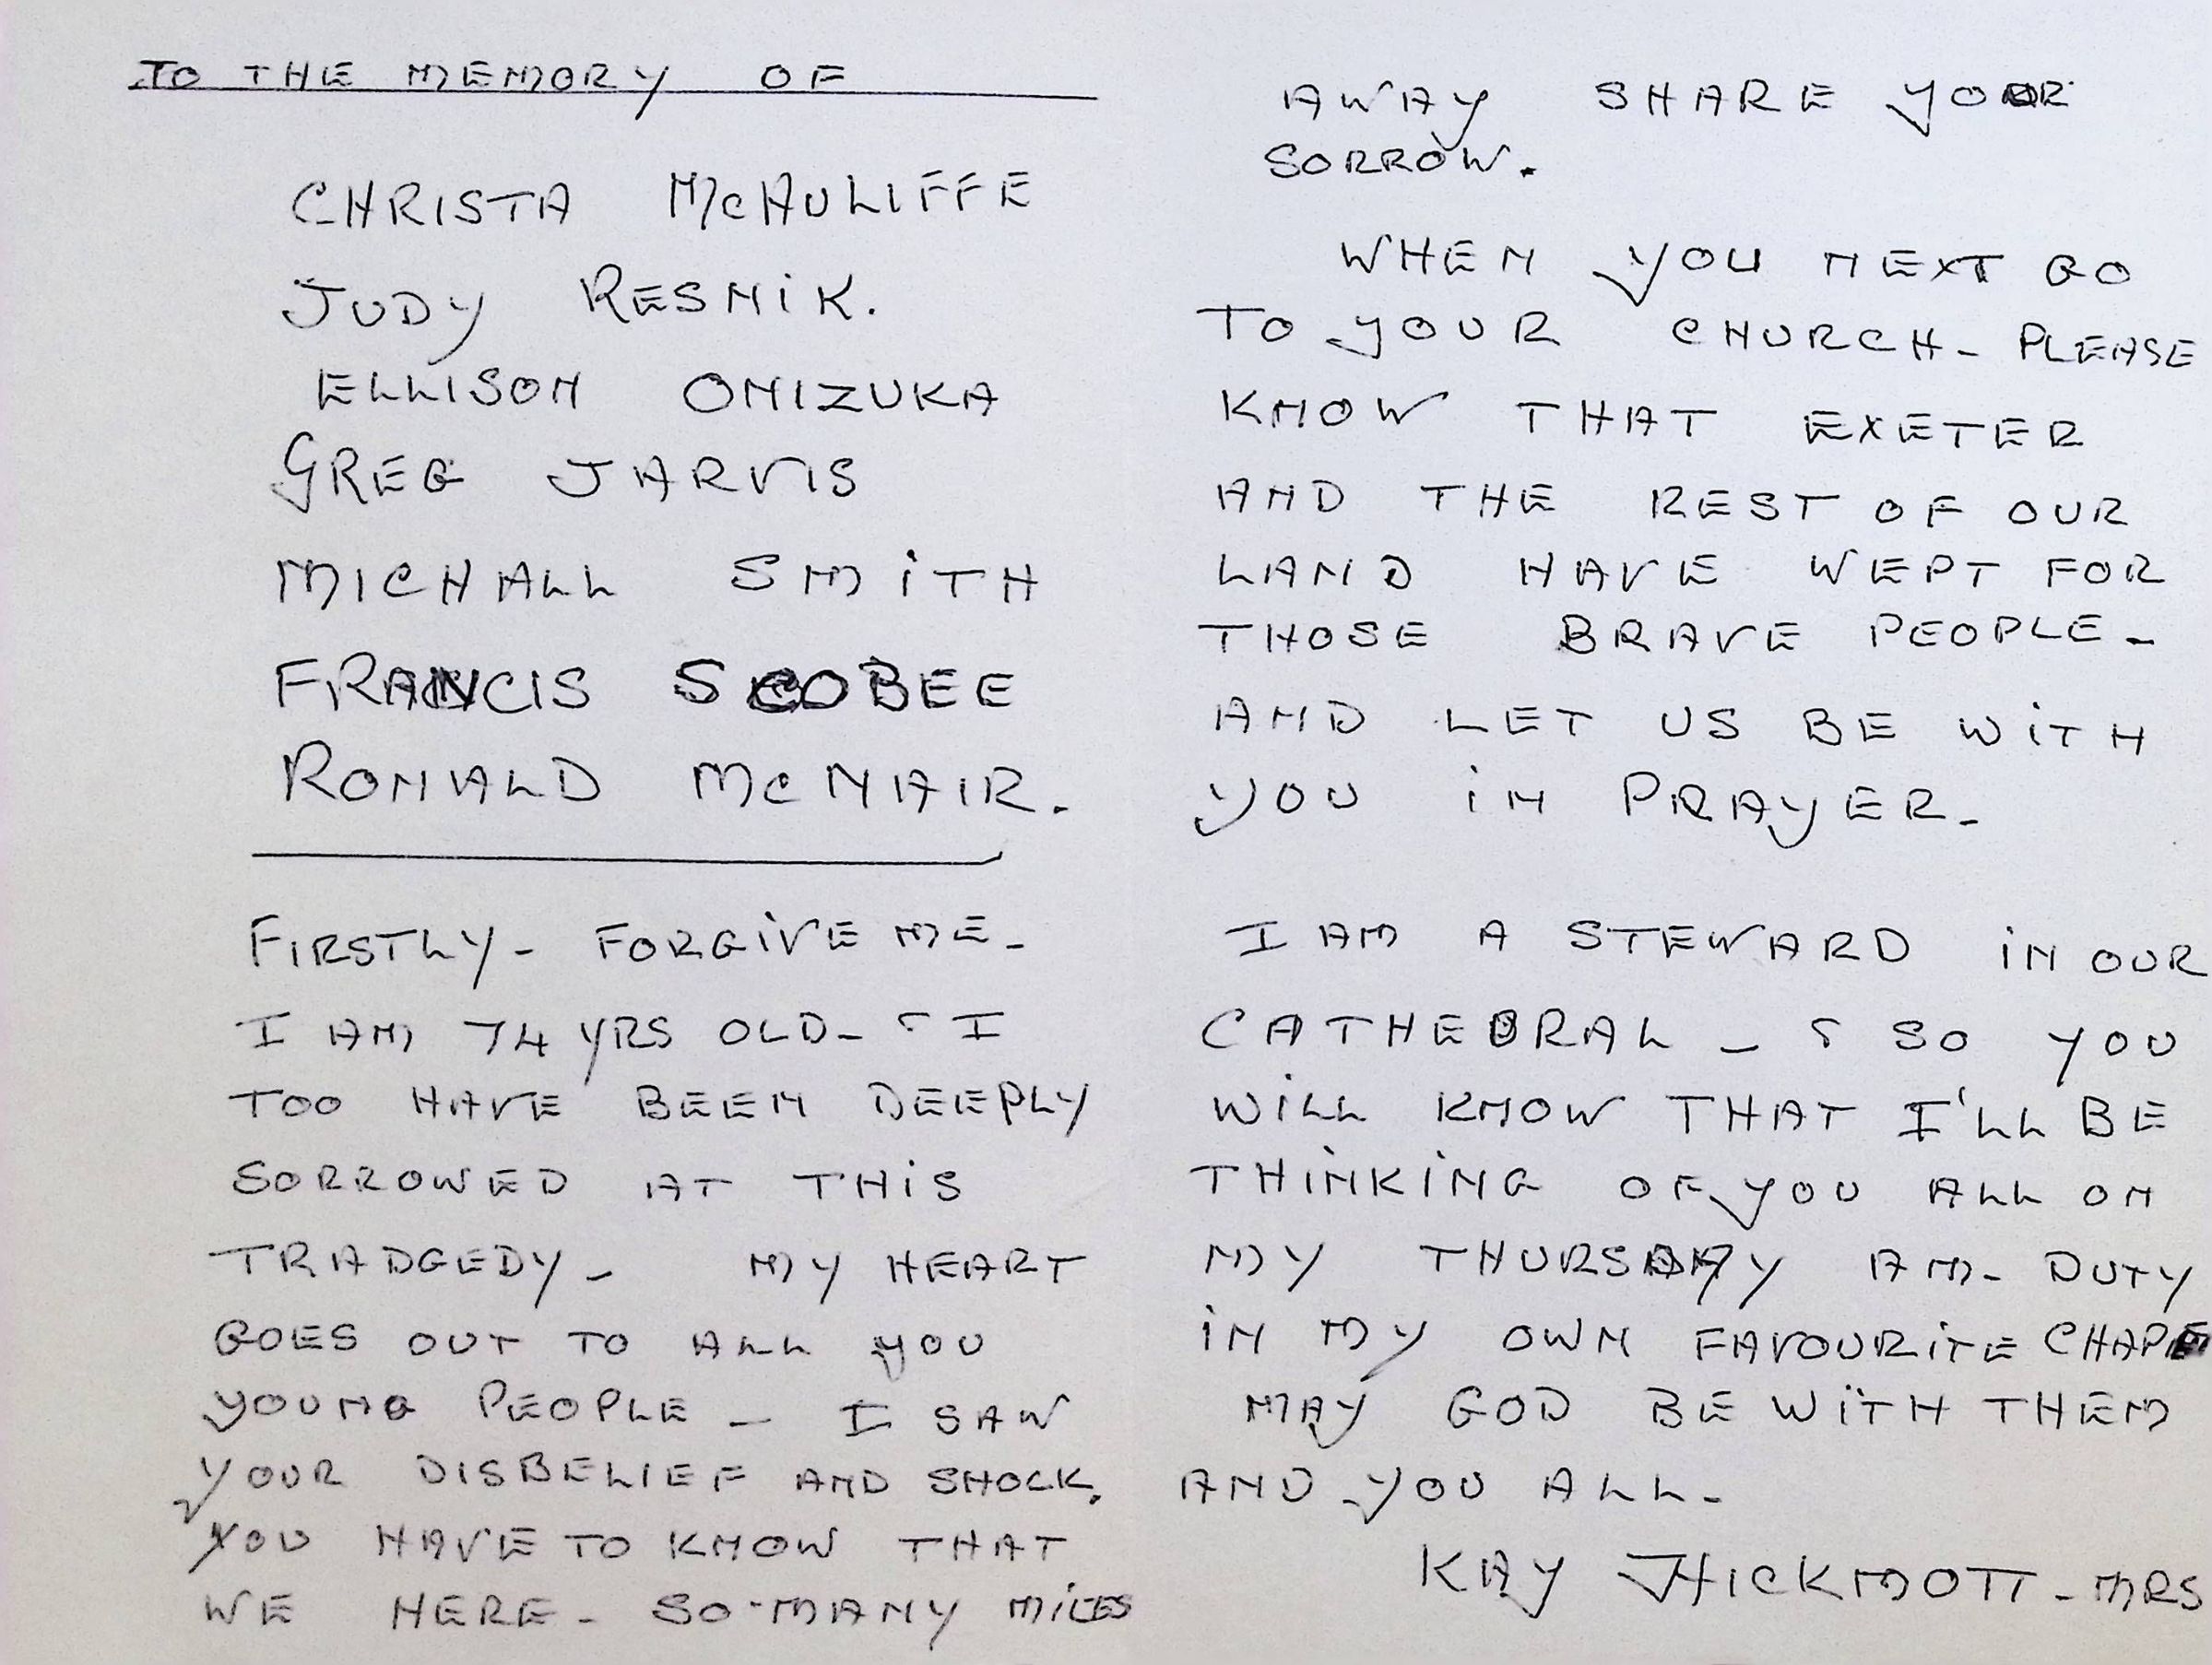 TO THE MEMORY OF
CHRISTA McAULIFFE
JUDY RESNiK.
ELLISON ONIZUKA
GREG JARVIS
MICHALL SMiTH
FRANCIS SCOBEE
RONALD McNAIR.
FIRSTLY - FORGiVE ME -
I AM 74 YRS OLD - & I
TOO HAVE BEEN DEEPLY
SORROWED AT THiS
TRADGEDY - MY HEART
GOES OUT TO ALL YOU
YOUNG PEOPLE - I SAW
YOUR DISBELIEF AND SHOCK,
YOU HAVE TO KNOW THAT
WE HERE - SO-MANY MiLES
AWAY SHARE YOUR
SORROW.
WHEN YOU NEXT GO
TO YOUR CHURCH - PLEASE
KNOW THAT EXETER
AND THE REST OF OUR
LAND HAVE WEPT FOR
THOSE BRAVE PEOPLE -
AND LET US BE WiTH
YOU iN PRAYER -
I AM A STEWARD iN OUR
CATHEDRAL - & SO YOU
WiLL KNOW THAT I'LL BE
THiNKiNG OF YOU ALL ON
MY THURSDAY AM - DUTY
iN MY OWN FAVOURiTE
MAY GOD BE WiTH THEM
AND YOU ALL -
KAY HICKMOTT - MRS